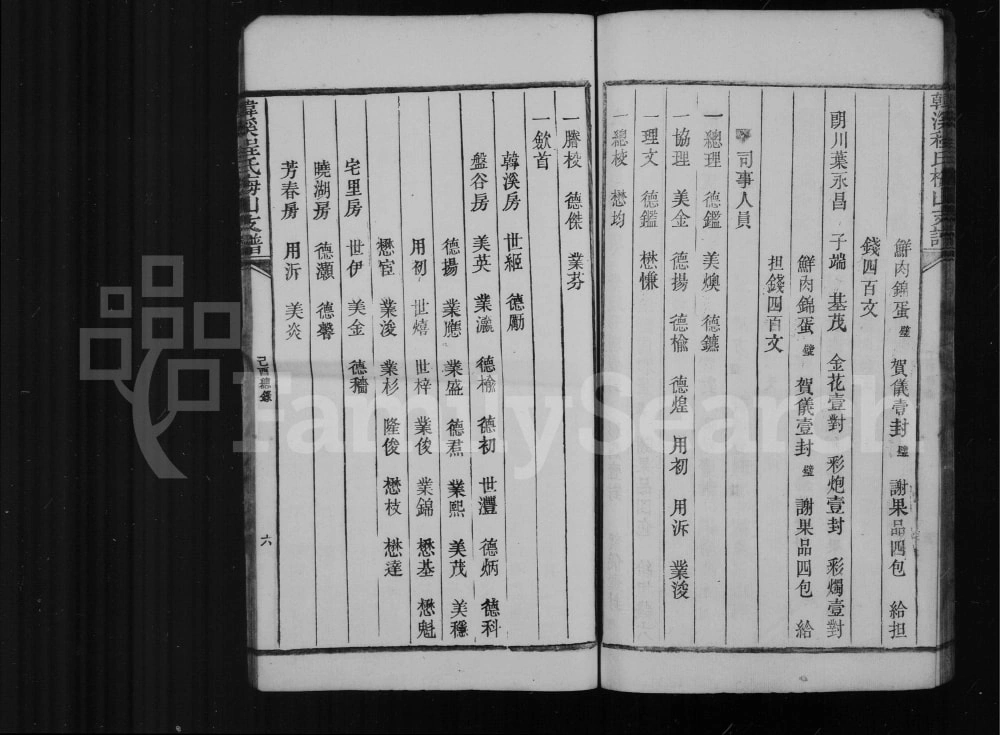 鮮肉錦蛋 璧 賀儀壹封 璧 謝果品四包 給担
錢四百文
閉川葉永昌 子端 基茂 金花壹對 彩炮壹封 彩燭壹對
鮮肉錦蛋 璧 賀儀壹封 璧 謝果品四包 給
担錢四百文
司事人員
一總理 德鑑 美煥 德鑣
一協理 美金 德揚 德楡 德煌 用初 用泝 業浚
一理文 德鑑 懋慊
一總校 懋均
一謄校 德傑 業芬
一斂首
韓溪房 世姬 德勵
盤谷房 美英 業瀛 德檜 德初 世灃 德炳 德科
德揚 業應 業盛 德焄 業熙 美茂 美穩
用初 世熺 世梓 業俊 業錦 懋基 懋魁
懋宦 業浚 業杉 隆俊 懋枝 懋達
宅里房 世伊 美金 德穡
曉湖房 德灝 德馨
芳春房 用泝 美炎
韓溪程氏梅山支譜
己酉總錄
六
FamilySearch